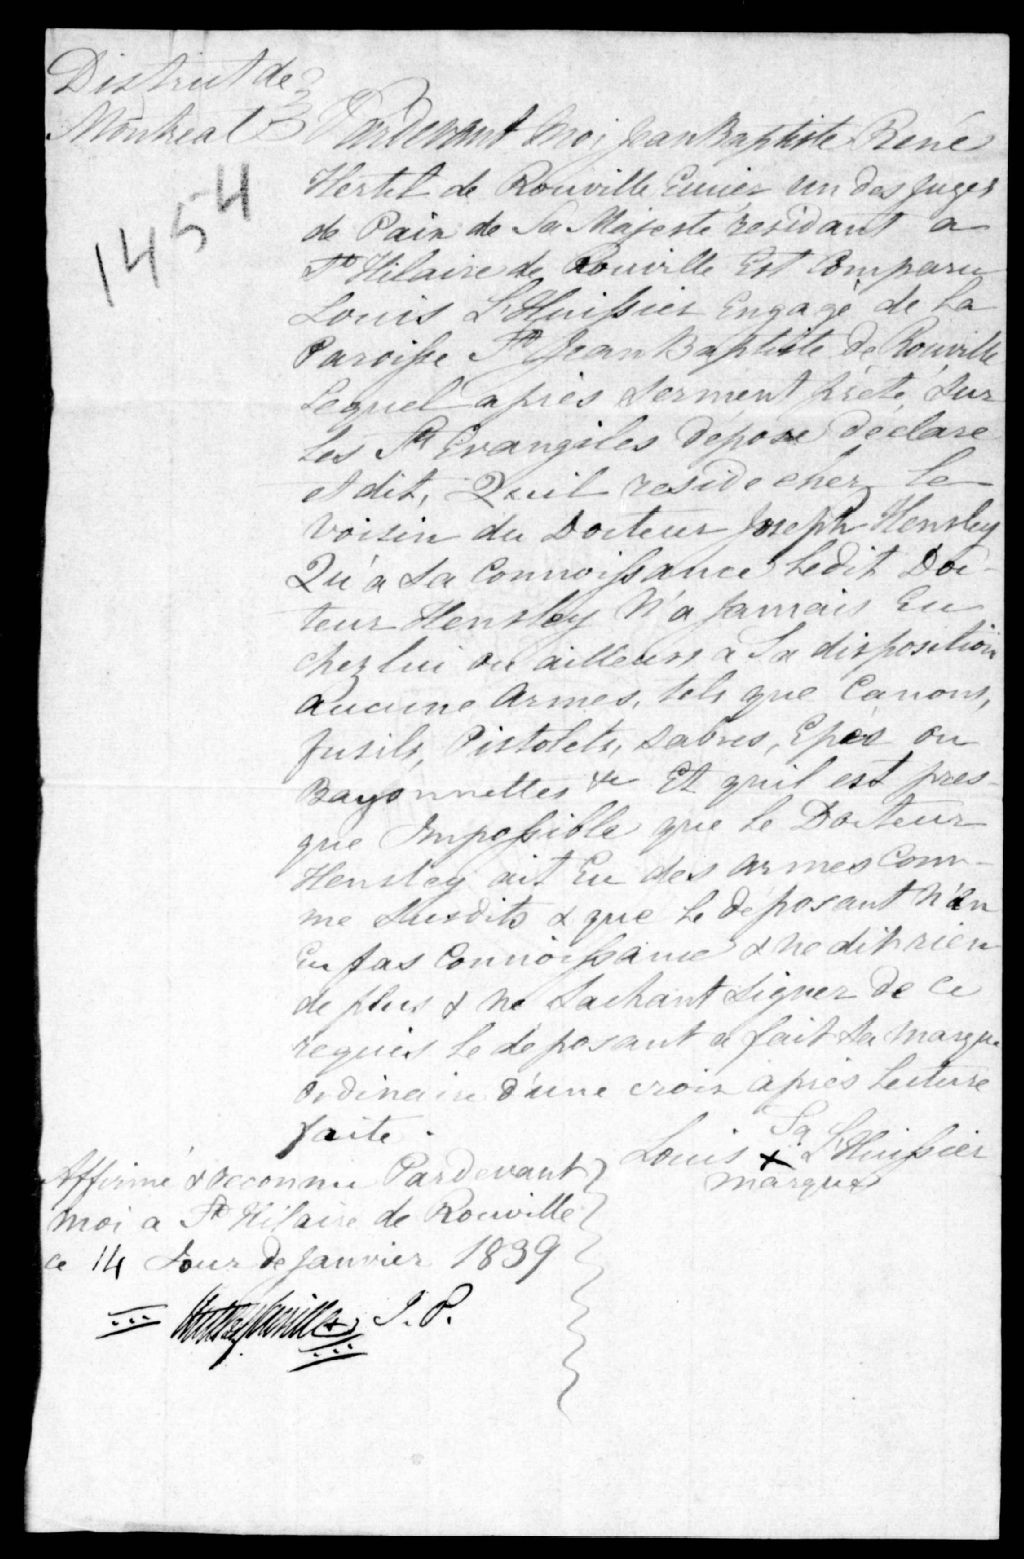 District de
Montreal
1454
Pardevant Moi Jean Baptiste René
Hertel de Rouville Ecuier un des Juges
de Paix de Sa Majesté residant a
St Hilaire de Rouville Est Comparu
Louis L'Huissier Engagé de la
Paroisse St Jean Baptiste de Rouville
Lequel après serment prété, sur
les Sts Evangiles depose déclare
et dit, Quil reside chez le
voisin du Docteur Joseph Hensley
Qu'a sa Connoissance Ledit Doc-
teur Hensley N'a Jamais Eu
chez lui ou ailleurs a Sa disposition
Aucune Armes, tels que Canons,
fusils, Pistolets, sabres, Epés ou
Bayonnettes &c Et quil est pres-
que Impossible que le Docteur
Hensley ait Eu des armes Com-
me susdits & que le déposant N'en
Eu pas Connoissance & ne dit rien
de plus & ne Sachant signer de ce
requis le deposant a fait sa marque
Ordinaire d'une croix après lecture
faite.
Sa
Louis x L'Huissier
marque
Affirmé & reconnu Pardevant
moi a St Hilaire de Rouville
ce 14 Jour de Janvier 1839
J. P.